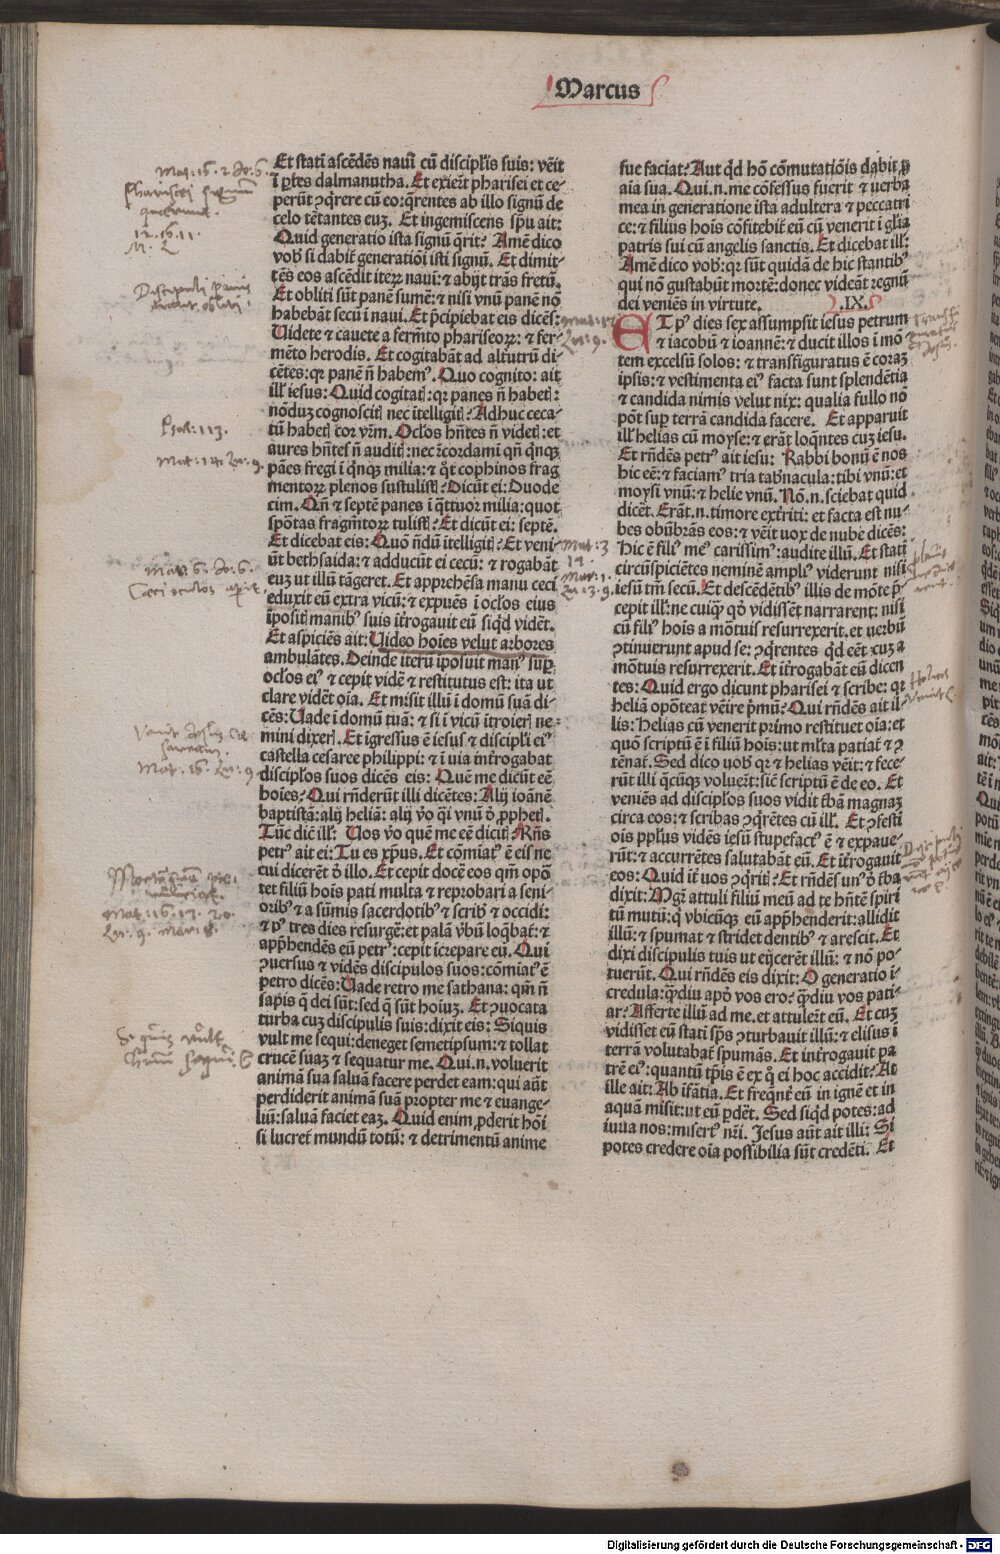 Marcus
Et stati᷒ ascēdēs nauī cū discipl̄is suis: vēit
ī ꝑtes dalmanutha. Et exierūt pharisei et ce-
perūt ꝯq̄rere cū eo: q̄rentes ab illo signū de
celo tētantes euꝫ. Et ingemiscens sp̄u ait:
Quid generatio ista signū q̄rit? Amē dico
vob̄ si dabit̄ generatioī isti signū. Et dimit-
tēs eos ascēdit iteꝝ nauī: ⁊ abijt trās fretū.
Et obliti sūt panē sumē: ⁊ nisi vnū panē nō
habebāt secū ī naui. Et p̄cipiebat eis dicēs:
Videte ⁊ cauete a fermēto phariseoꝝ: ⁊ fer-
mēto herodis. Et cogitabāt ad alt̄utrū di
cētes: qꝛ panē nō habemꝰ. Quo cognito: ait
ill̄ iesus: Quid cogitatꝭ: qꝛ panes nō habetꝭ:
nōdum cognoscitꝭ nec ītelligitꝭ? Adhuc ceca-
tū habetꝭ cor vr̄m. Oc̄los hn̄tes nō videtꝭ: et
aures hn̄tes nō auditꝭ: nec recordamī qn̄ qͥnqꝫ
pāes fregi ī qͥnqꝫ milia: ⁊ qͦt cophinos frag
mentoꝝ plenos sustulistꝭ? Dicūt ei: Duode
cim. Qn̄ ⁊ septē panes ī qͣttuor milia: quot
spōtas fragm̄toꝝ tulistꝭ? Et dicūt ei: septē.
Et dicebat eis: Quō nōdū ītelligitꝭ? Et veni-
ūt bethsaida: ⁊ adducūt ei cecū: ⁊ rogabāt
euꝫ ut illū tāgeret. Et apprehēsa manu ceci
eduxit eū extra vicū: ⁊ expuēs ī oc̄los eius
īpositꝭ manibꝰ suis īt̄rogauit eū siqͥd vidēt.
Et aspiciēs ait: Video hoīes velut arbores
ambulātes. Deinde iterū īposuit manꝰ suꝑ
oc̄los eiꝰ ⁊ cepit vidē ⁊ restitutus est: ita ut
clare vidēt oīa. Et misit illū ī domū suā di-
cēs: Uade ī domū tuā: ⁊ si ī vicū ītroierꝭ ne-
mini dixerꝭ. Et īgressus ē iesus ⁊ discipl̄i eiꝰ
castella cesaree philippi: ⁊ ī uia int̄rogabat
discipl̄os suos dicēs eis: Quē me dicūt eē
hoīes? Qui rn̄derūt illi dicētes: Alij ioānē
baptistā: alij heliā: alij v̄o qͣi vnū ꝺ ꝓphetꝭ.
Tūc dic̄ ill̄: Vos v̄o quē me eē dicitꝭ? Rn̄s
petrꝰ ait ei: Tu es xp̄us. Et cōmiatꝰ ē eis ne
cui dicerēt ꝺ illo. Et cepit docē eos qm̄ opō
tet filiū hoīs pati multa ⁊ reprobari a seni-
oribꝰ ⁊ a sūmis sacerdotibꝰ ⁊ scribꝭ ⁊ occidi:
⁊ pꝰ tres dies resurgē: et palā v̄bū loq̄bat̄: ⁊
app̄hendēs eū petrꝰ: cepit īcrepare eū. Qui
ꝯuersus ⁊ vidēs discipulos suos: cōmiatꝰ ē
petro dicēs: Uade retro me sathana: qm̄ nō
sapis q̄ dei sūt: sed q̄ sūt hoīuꝫ. Et ꝯuocata
turba cuꝫ discipulis suis: dixit eis: Siquis
vult me sequi: deneget semetipsum: ⁊ tollat
crucē suaꝫ ⁊ sequatur me. Qui .n. voluerit
animā sua saluā facere perdet eam: qui aūt
perdiderit animā suā propter me ⁊ euange-
liū: saluā faciet eaꝫ. Quid enim ꝓderit hōī
si lucret̄ mundū totū: ⁊ detrimentū anime
sue faciat? Aut qͥd hō cōmutatiōis dabit ꝓ
aīa sua. Qui .n. me cōfessus fuerit ⁊ uerba
mea in generatione ista adultera ⁊ peccatri
ce: ⁊ filius hoīs cōfitebit̄ eū cū venerit ī gl̄ia
patris sui cū angelis sanctis. Et dicebat ill̄:
Amē dico vob̄: qꝛ sūt quidā de hic stantibꝰ
qui nō gustabūt mortē: donec videāt regnū
dei veniēs in virtute. .IX.
ET pꝰ dies sex assumpsit iesus petrum
⁊ iacobū ⁊ ioannē: ⁊ ducit illos ī mō
tem excelsū solos: ⁊ transfiguratus ē coraꝫ
ipsis: ⁊ vestimenta eiꝰ facta sunt splendētia
⁊ candida nimis velut nix: qualia fullo nō
pōt suꝑ terrā candida facere. Et apparuit
ill̄ helias cū moyse: ⁊ erāt loq̄ntes cuꝫ iesu.
Et rn̄dēs petrꝰ ait iesu: Rabbi bonū ē nos
hic eē: ⁊ faciamꝰ tria tab̄nacula: tibi vnū: et
moysi vnū: ⁊ helie vnū. Nō .n. sciebat quid
dicēt. Erāt .n. timore ext̄riti: et facta est nu-
bes obūbrās eos: ⁊ vēit uox de nube dicēs:
Hic ē filiꝰ meꝰ carissimꝰ: audite illū. Et stati
circūspiciētes neminē ampliꝰ viderunt nisi
iesū tm̄ secū. Et descēdētibꝰ illis de mōte p̄-
cepit ill̄: ne cuiqͣ qͦ vidissēt narrarent: nisi
cū filiꝰ hoīs a mōtuis resurrexerit. et uerbū
ꝯtinuerunt apud se: ꝯq̄rentes qͥd eēt cuꝫ a
mōtuis resurrexerit. Et īt̄rogabāt eū dicen
tes: Quid ergo dicunt pharisei ⁊ scribe: qꝛ
heliā opōteat vēire pͥmū? Qui rn̄dēs ait il-
lis: Helias cū venerit primo restituet oīa: et
quō scriptū ē ī filiū hoīs: ut ml̄ta patiat̄ ⁊ ꝯ
tēnat̄. Sed dico uob̄ qꝛ ⁊ helias vēit: ⁊ fece-
rūt illi q̄cūqꝫ voluēt: sic̄ scriptū ē de eo. Et
veniēs ad discipl̄os suos vidit t̄bā magnaꝫ
circa eos: ⁊ scribas ꝯq̄rētes cū ill̄. Et ꝯfesti
oīs ppl̄us vidēs iesū stupefactꝰ ē ⁊ expaue-
rūt: ⁊ accurrētes salutabāt eū. Et īt̄rogauit
eos: Quid int̄ uos ꝯqͥritꝭ? Et rn̄dēs unꝰ ꝺ t̄ba
dixit: Mgr̄ attuli filiū meū ad te hn̄tē spiri
tū mutū: qͥ vbicūqꝫ eū app̄henderit: allidit
illū: ⁊ spumat ⁊ stridet dentibꝰ ⁊ arescit. Et
dixi discipulis tuis ut eijcerēt illū: ⁊ nō po-
tuerūt. Qui rn̄dēs eis dixit: O generatio ī-
credula: qͣdiu apꝺ vos ero? qͣdiu vos pati-
ar? Afferte illū ad me. et attulert̄ eū. Et cuꝫ
vidisset eū stati sp̄s ꝯturbauit illū: ⁊ elisus ī
terrā volutabat̄ spumās. Et int̄rogauit pa
trē eiꝰ: quantū tp̄is ē ex qͦ ei hoc accidit? At
ille ait: Ab īfātia. Et freq̄nt̄ eū in ignē et in
aquā misit: ut eū ꝑdēt. Sed siqͥd potes: ad
iuua nos: misertꝰ nr̄i. Jesus aūt ait illi: Si
potes credere oīa possibilia sūt credēti. Et
Psal: 113.
Digitalisierung gefördert durch die Deutsche Forschungsgemeinschaft - DFG